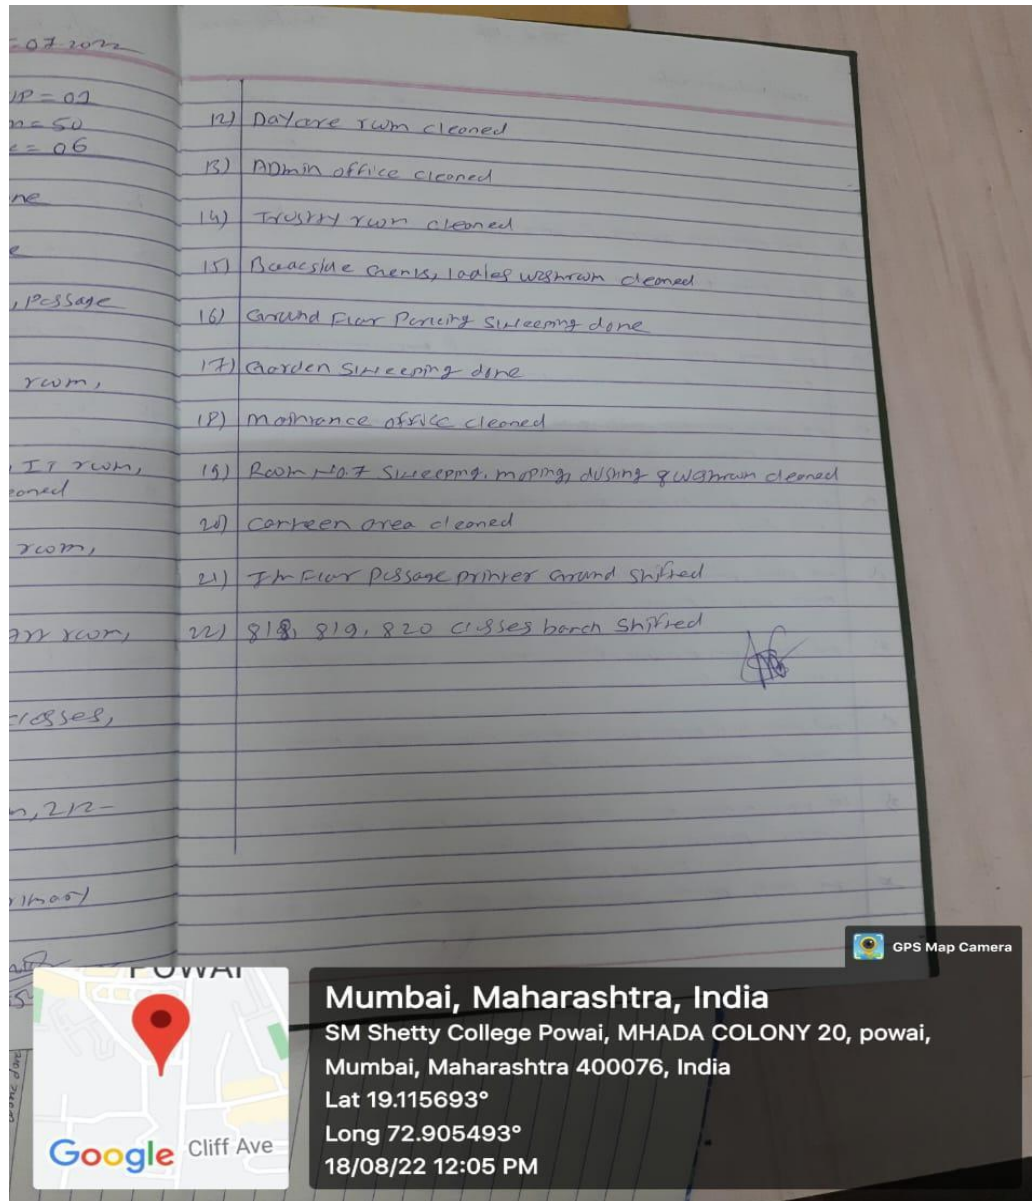 -07-2022
UP = 01
n = 50
e = 06
ne
e
, Passage
room,
, IT room,
eaned
room,
room,
classes,
n, 212-
12) Daycare room cleaned
13) Admin office cleaned
14) Trustry room cleaned
15) Gents, ladies washroom cleaned
16) Ground Floor Parking Sweeping done
17) Garden Sweeping done
18) office cleaned
19) Room No.7 Sweeping, moping, dusting & washroom cleaned
20) Canteen area cleaned
21) Floor Passage printer Ground Shifted
22) 818, 819, 820 classes banch Shifted
GPS Map Camera
POWAI
Google Cliff Ave
Mumbai, Maharashtra, India
SM Shetty College Powai, MHADA COLONY 20, powai,
Mumbai, Maharashtra 400076, India
Lat 19.115693°
Long 72.905493°
18/08/22 12:05 PM